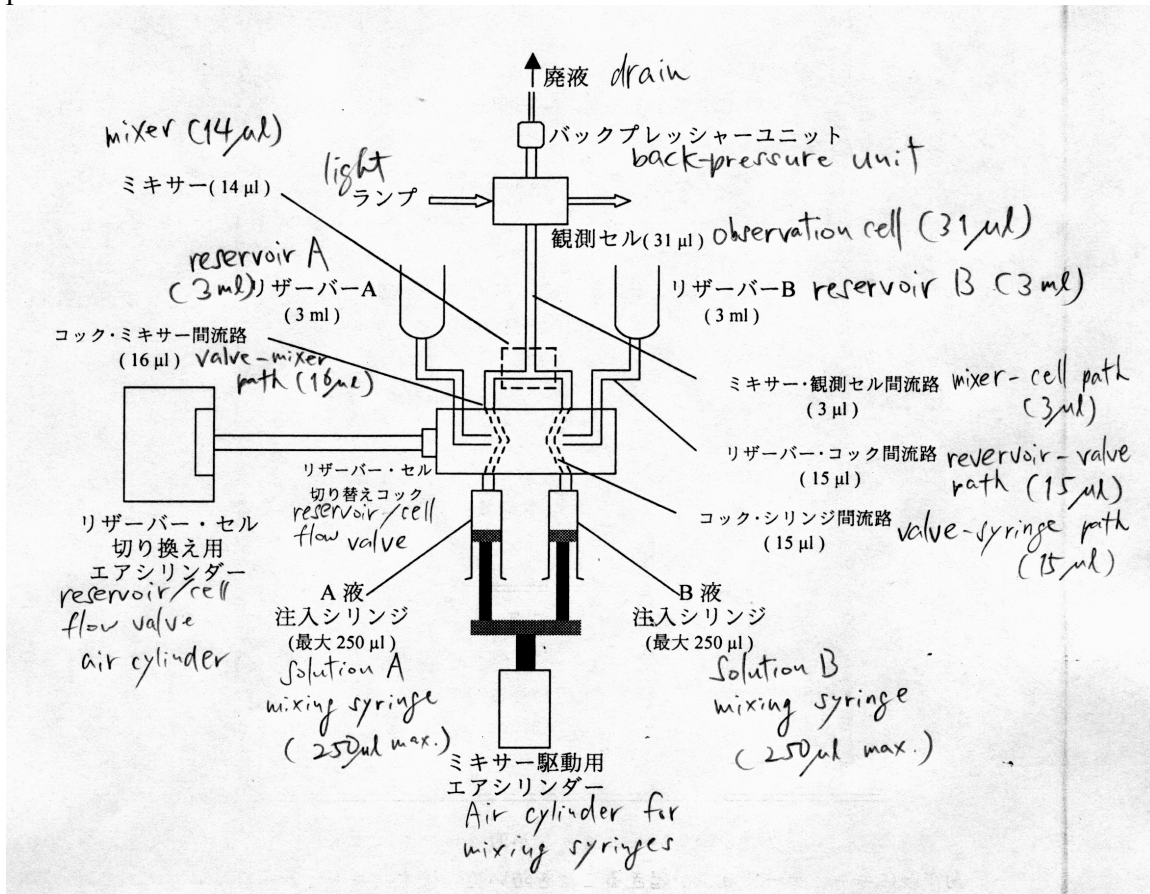 廃液 drain
バックプレッシャーユニット
back-pressure unit
mixer (14μl)
ミキサー(14 μl)
light
ランプ
観測セル(31 μl) observation cell (31μl)
reservoir A
(3ml) リザーバーA
(3 ml)
リザーバーB reservoir B (3ml)
(3 ml)
コック・ミキサー間流路
(16 μl) valve-mixer
path (16μl)
ミキサー・観測セル間流路 mixer-cell path
(3 μl) (3μl)
リザーバー・コック間流路 revervoir-valve
(15 μl) path (15μl)
コック・シリンジ間流路 valve-syringe path
(15 μl) (15μl)
リザーバー・セル
切り替えコック
reservoir/cell
flow valve
リザーバー・セル
切り換え用
エアシリンダー
reservoir/cell
flow valve
air cylinder
A 液
注入シリンジ
(最大 250 μl)
solution A
mixing syringe
(250μl max.)
B 液
注入シリンジ
(最大 250 μl)
solution B
mixing syringe
(250μl max.)
ミキサー駆動用
エアシリンダー
Air cylinder for
mixing syringes